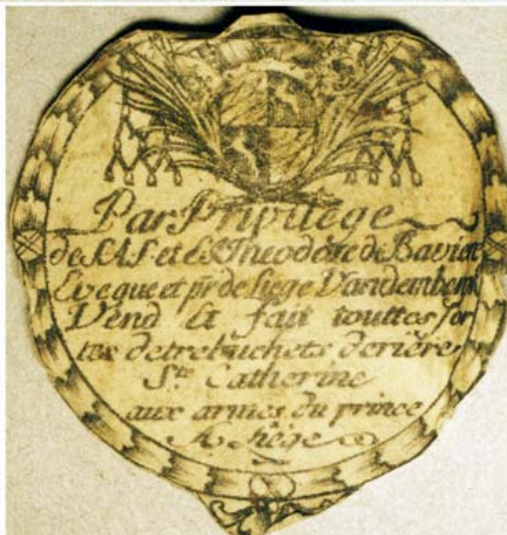 Par Privilege
de S.A.S. et E. Theodore de Baviere
Eveque et pr de Liege Vandembem
Vend Et fait touttes sor
tes de trebuchets deriére
Ste Catherine
aux armes du prince
A Liége